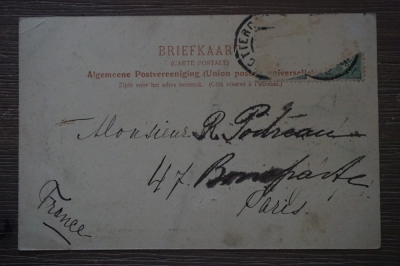 BRIEFKAART
(CARTE POSTALE)
Algemeene Postvereeniging (Union postale universelle)
Zijde voor het adres bestemd. (Côté réservé à l'adresse.)
Monsieur R.
47 Bonaparte
Paris
France